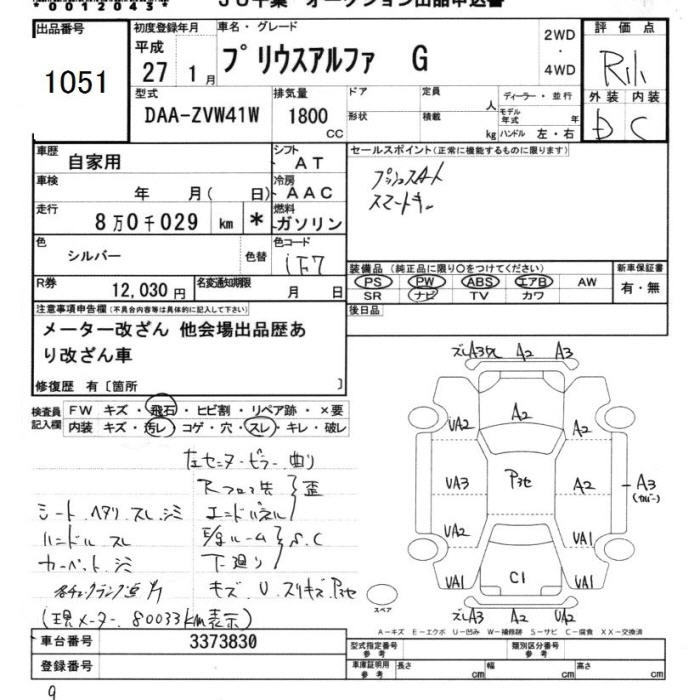 00012045
JU千葉 オークション出品申込書
出品番号 初度登録年月 車名・グレード 2WD・4WD 評価点
1051 平成27 1月 プリウスアルファ G
外装 内装
D C
型式 排気量 ドア 定員 人 ディーラー・並行
DAA-ZVW41W 1800 CC 形状 積載 kg モデル年式 年 ハンドル 左・右
車歴 自家用 シフト AT セールスポイント(正常に機能するものに限ります)
車検 年 月( 日) 冷房 AAC プッシュスタート
スマートキー
走行 8万0千029 km * 燃料 ガソリン
色 シルバー 色替 色コード 1F7
装備品(純正品に限り○をつけてください) 新車保証書
R券 12,030円 名変通知期限 月 日 PS PW ABS エアB AW 有・無
SR ナビ TV カワ
注意事項申告欄(不具合内容等は具体的に記入して下さい) 後日品
メーター改ざん 他会場出品歴あ
り改ざん車
修復歴 有〔箇所 〕
検査員記入欄 FW キズ・飛石・ヒビ割・リペア跡・×要
内装 キズ・汚レ・コゲ・穴・スレ・キレ・破レ
A3 A2 A3
VA2 A2 A2
VA3 A2 A3
VA2 VA1
VA1 C1 VA1
A3 A2 VA2
左センターピラー曲り
歪
シート ヘタリ スレ シミ エンドパネル
ハンドル スレ ルーム S.C
カーペット シミ 下廻り
キズ U スリキズ
(現メーター 80033km表示)
スペア
A-キズ E-エクボ U-凹み W-補修跡 S-サビ C-腐食 XX-交換済
車台番号 3373830 型式指定番号 参考 類別区分番号 参考
登録番号 車庫証明用 参考 長さ cm 幅 cm 高さ cm
9